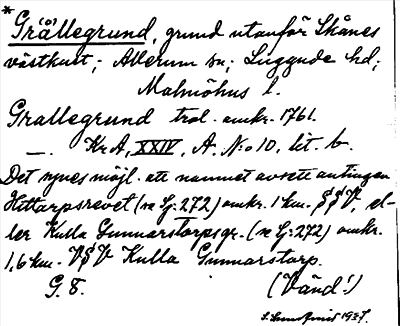 * Grå(ö)llegrund, grund utanför Skånes
västkust; Allerum sn; Luggude hd;
Malmöhus l.
Grallegrund trol. omkr. 1761.
—. KrA, XXIV, A, N:o 10, lit. b.
Det synes möjl. att namnet avsett antingen
Hittarpsrevet (se Ej:272) omkr. 1 km. S§V, el-
ler Kulla Gunnarstorpsgr. (se Ej:272) omkr.
1,6 km. V§V Kulla Gunnarstorp.
G. 8. (Vänd!)
1937.